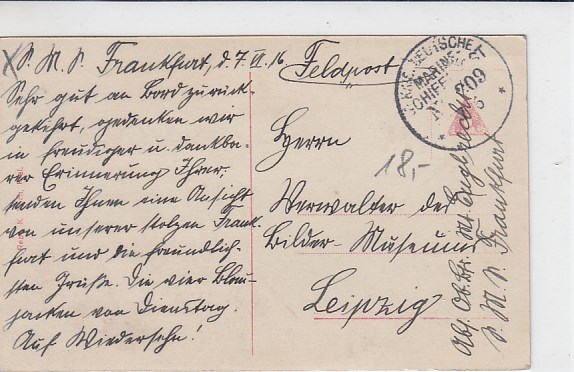 S. M. S. Frankfurt, d. 7. VI. 16
Sehr gut an Bord zurück-
gekehrt, gedenken wir
in freudiger u. dankba-
rer Erinnerung Ihrer,
senden Ihnen eine Ansicht
von unserer stolzen Frank-
furt und die freundlich-
sten Grüße. Die vier Blau-
jacken von Dienstag.
Auf Wiedersehn!
Feldpost
KAIS. DEUTSCHE
MARINE-
SCHIFFSPOST
No 209
Herrn
Verwalter des
Bilder-Museums
Leipzig
18,-
Abs. Ob.
S. M. S. Frankfurt